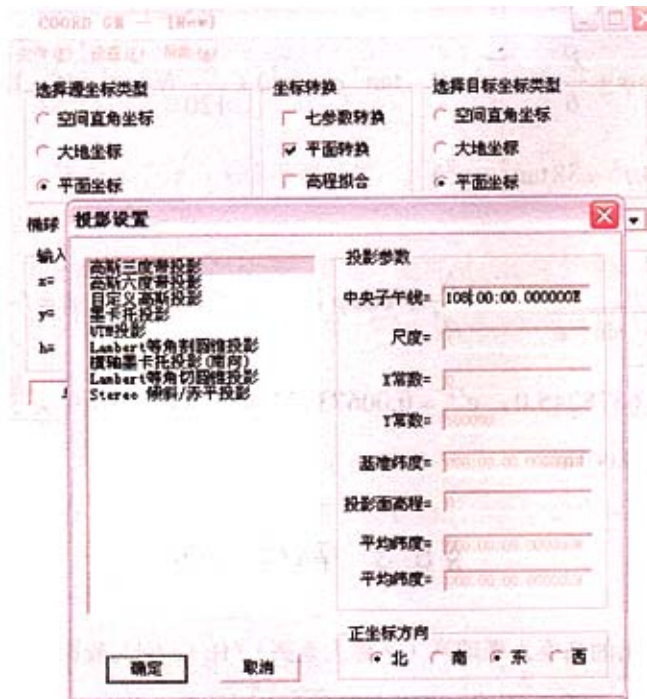 COORD GM -- [New]
选择源坐标类型
空间直角坐标
大地坐标
平面坐标
坐标转换
七参数转换
平面转换
高程拟合
选择目标坐标类型
空间直角坐标
大地坐标
平面坐标
椭球
输入
x=
y=
h=
投影设置
高斯三度带投影
高斯六度带投影
自定义高斯投影
墨卡托投影
UTM投影
Lambert等角割圆锥投影
横轴墨卡托投影(南向)
Lambert等角切圆锥投影
Stereo 倾斜/赤平投影
投影参数
中央子午线= 108:00:00.000000E
尺度=
X常数=
Y常数=
基准纬度=
投影面高程=
平均纬度=
平均纬度=
正坐标方向
北 南 东 西
确定 取消